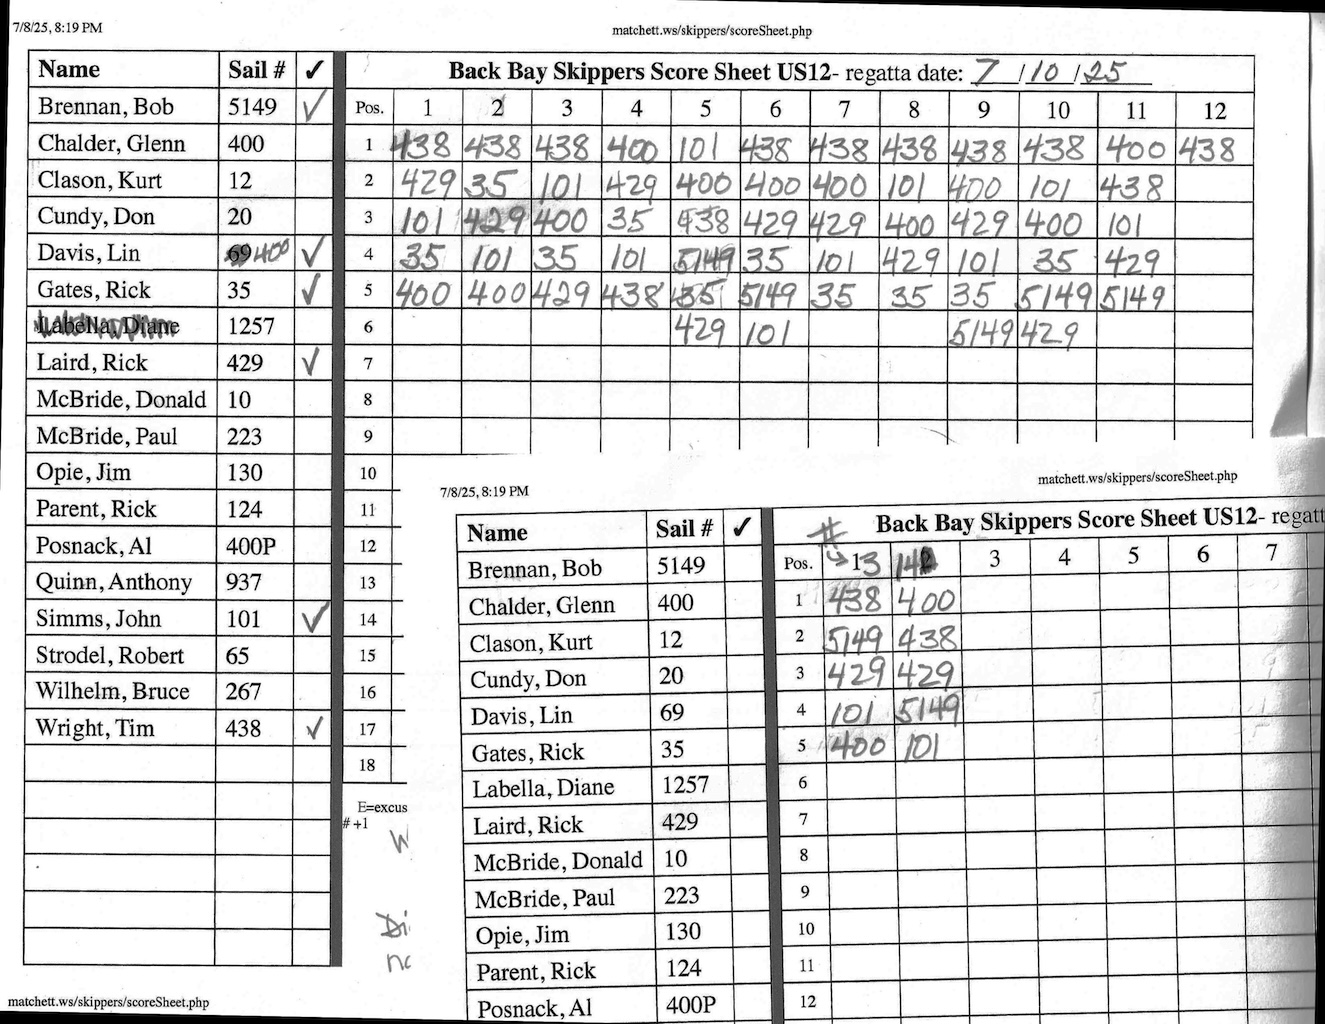 7/8/25, 8:19 PM
matchett.ws/skippers/scoreSheet.php
Name Sail # ✓ Back Bay Skippers Score Sheet US12- regatta date: 7 /10 /25
Brennan, Bob 5149 ✓ Pos. 1 2 3 4 5 6 7 8 9 10 11 12
Chalder, Glenn 400 1 438 438 438 400 101 438 438 438 438 438 400 438
Clason, Kurt 12 2 429 35 101 429 400 400 400 101 400 101 438
Cundy, Don 20 3 101 429 400 35 438 429 429 400 429 400 101
Davis, Lin 69 400 ✓ 4 35 101 35 101 5149 35 101 429 101 35 429
Gates, Rick 35 ✓ 5 400 400 429 438 35 5149 35 35 35 5149 5149
Labella, Diane 1257 6 429 101 5149 429
Laird, Rick 429 ✓ 7
McBride, Donald 10 8
McBride, Paul 223 9
Opie, Jim 130 10
Parent, Rick 124 11
Posnack, Al 400P 12
Quinn, Anthony 937 13
Simms, John 101 ✓ 14
Strodel, Robert 65 15
Wilhelm, Bruce 267 16
Wright, Tim 438 ✓ 17
18
E=excus
# +1
W
Di
no
matchett.ws/skippers/scoreSheet.php
7/8/25, 8:19 PM
matchett.ws/skippers/scoreSheet.php
Name Sail # ✓ # Back Bay Skippers Score Sheet US12- regatt
Brennan, Bob 5149 Pos. 13 14 3 4 5 6 7
Chalder, Glenn 400 1 438 400
Clason, Kurt 12 2 5149 438
Cundy, Don 20 3 429 429
Davis, Lin 69 4 101 5149
Gates, Rick 35 5 400 101
Labella, Diane 1257 6
Laird, Rick 429 7
McBride, Donald 10 8
McBride, Paul 223 9
Opie, Jim 130 10
Parent, Rick 124 11
Posnack, Al 400P 12